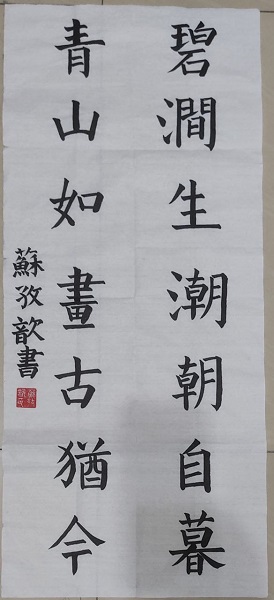 碧澗生潮朝自暮
青山如畫古猶今
蘇孜歆書